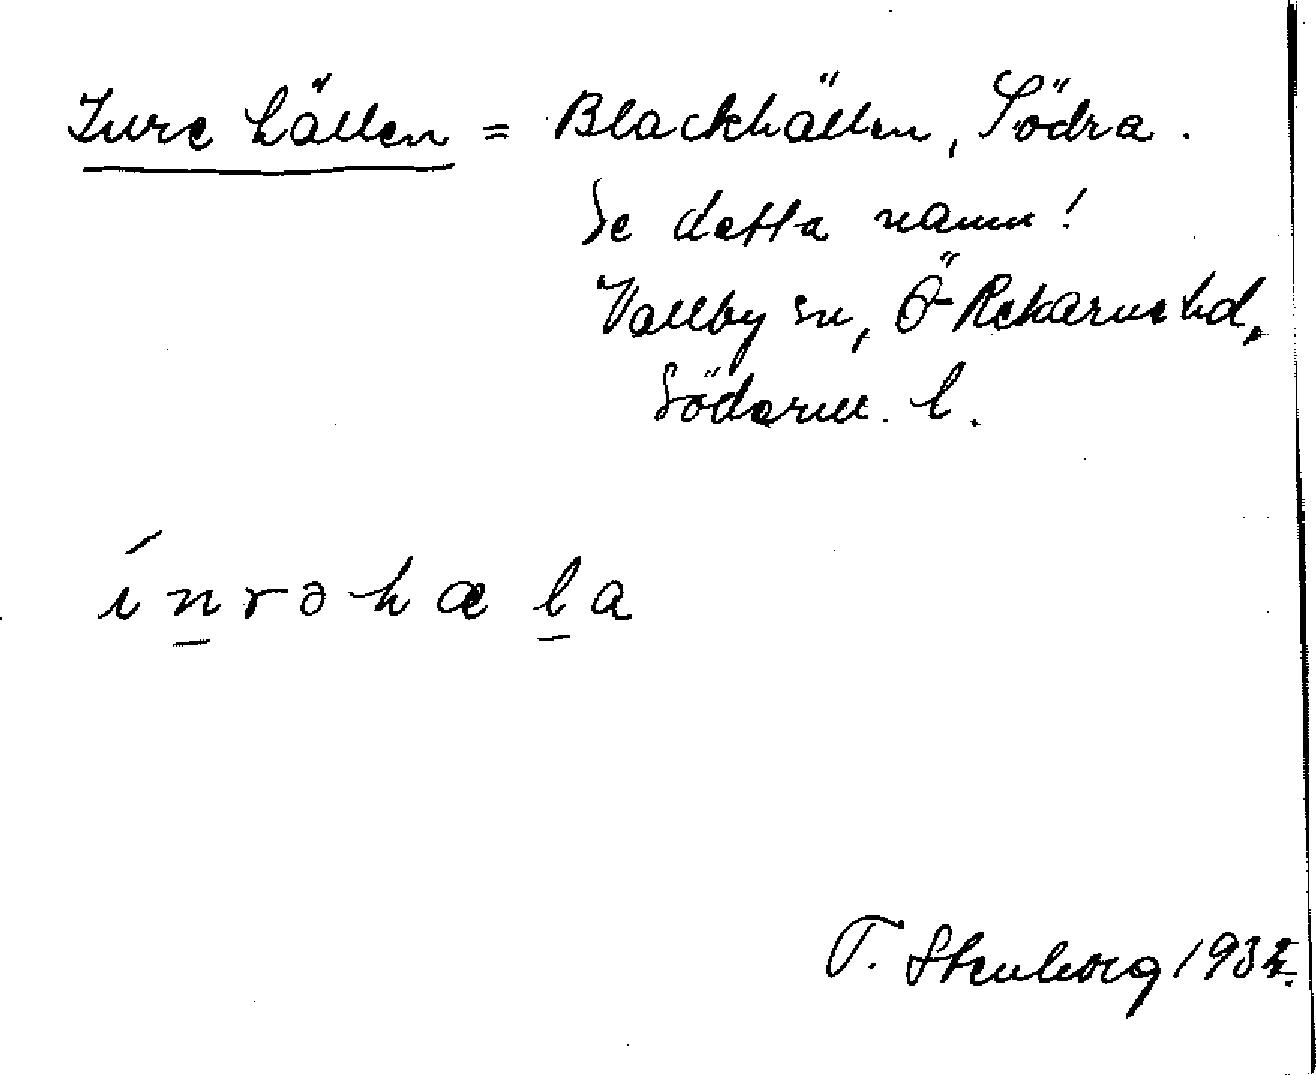 Inre hällen = Blackhällen, Södra.
Se detta namn!
Vallby sn, Ö-Rekarne hd,
Söderm. l.
ínrəhæla
T. Stenborg